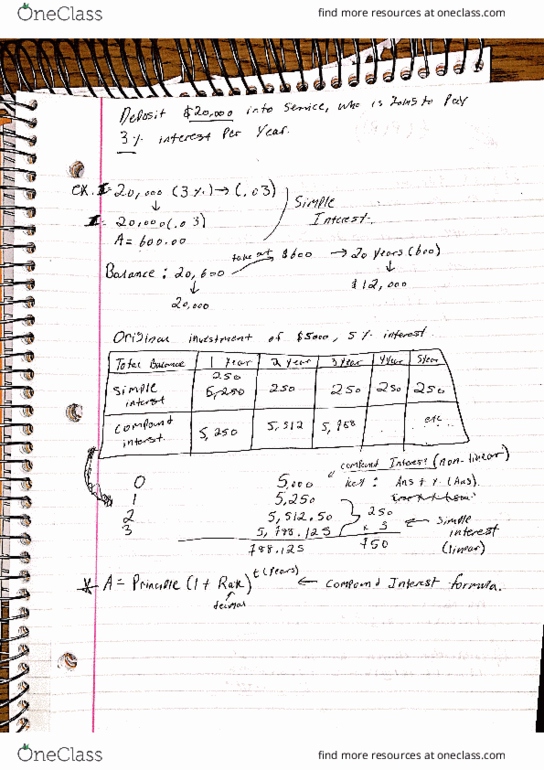 OneClass find more resources at oneclass.com
Deposit $20,000 into service, who is going to pay
3% interest per year.
ex. I= 20,000 (3%) → (.03)
↓
I= 20,000(.03)
A= 600.00
Simple
Interest.
Balance: 20,600 take out $600 → 20 years (600)
↓ ↓
20,000 $12,000
Original investment of $5000, 5% interest.
Total Balance 1 year 2 year 3 year 4 year 5 year
simple interest 250 5,250 250 250 250 250
compound interest. 5,250 5,512 5,788 . etc..
compound Interest (non-linear)
0 5,000 key: Ans + % (Ans).
1 5,250
2 5,512.50 250
3 5,788.125 x 3 ← simple
788.125 750 interest
(linear)
* A = Principle (1 + Rate)^t(years) ← compound Interest formula.
decimal
OneClass find more resources at oneclass.com